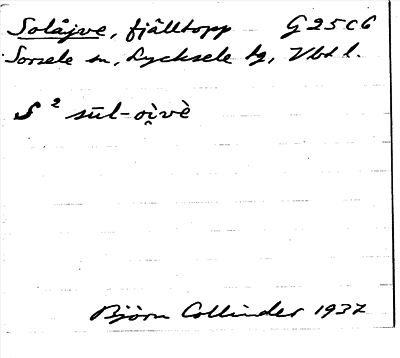 Solåjve, fjälltopp G25C6
Sorsele sn, Lycksele tg, Vbtl.
S² sūl-oi̭vè
Björn Collinder 1937